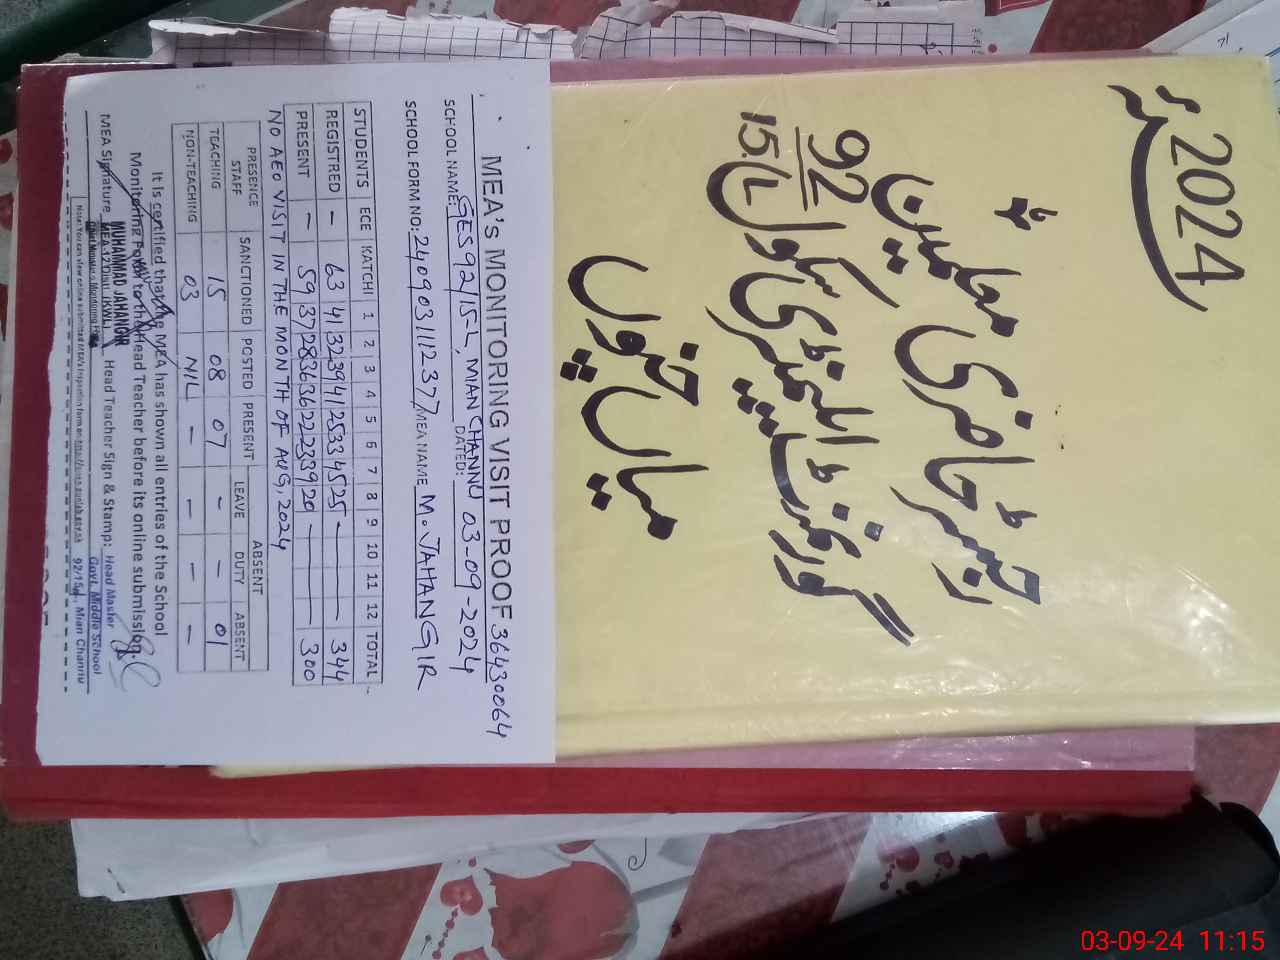 2024ء
رجسٹر حاضری معلمین
گورنمنٹ ایلیمنٹری سکول 92/15.L
میاں چنوں
MEA'S MONITORING VISIT PROOF 36430064
SCHOOL NAME: GES 92/15-L, MIAN CHANNU DATED: 03-09-2024
SCHOOL FORM NO: 2409031112377 MEA NAME M. JAHANGIR
STUDENTS ECE KATCHI 1 2 3 4 5 6 7 8 9 10 11 12 TOTAL
REGISTRED - 63 41 32 39 41 25 33 45 25 - 344
PRESENT - 59 37 28 36 36 22 23 39 20 - 300
NO AEO VISIT IN THE MONTH OF AUG, 2024
PRESENCE STAFF SANCTIONED POSTED PRESENT ABSENT
LEAVE DUTY ABSENT
TEACHING 15 08 07 - - 01
NON-TEACHING 03 NIL - - - -
It is certified that the MEA has shown all entries of the School
Monitoring Form to the Head Teacher before its online submission.
MEA Signature Head Teacher Sign & Stamp:
MUHAMMAD JAHANGIR
MEA-12 Distt. (KWL)
Head Master
Govt. Middle School
92/15L, Mian Channu
03-09-24 11:15